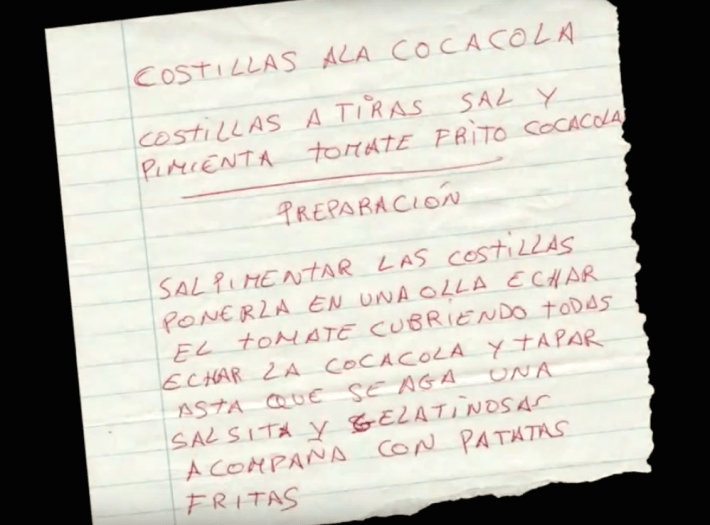 COSTILLAS ALA COCACOLA
COSTILLAS A TIRAS SAL Y
PIMIENTA TOMATE FRITO COCACOLA
PREPARACIÓN
SALPIMENTAR LAS COSTILLAS
PONERLA EN UNA OLLA ECHAR
EL TOMATE CUBRIENDO TODAS
ECHAR LA COCACOLA Y TAPAR
ASTA QUE SE AGA UNA
SALSITA Y GELATINOSAS
ACOMPAÑA CON PATATAS
FRITAS